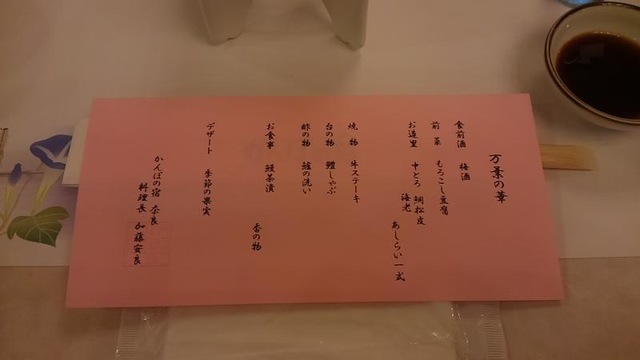 万葉の華
食前酒 梅酒
前菜 もろこし豆腐
お造里 中とろ 鯛松皮
海老 あしらい一式
焼物 牛ステーキ
台の物 鱧しゃぶ
酢の物 鱸の洗い
お食事 鰻茶漬
香の物
デザート 季節の果実
かんぽの宿 奈良
料理長 加藤安良